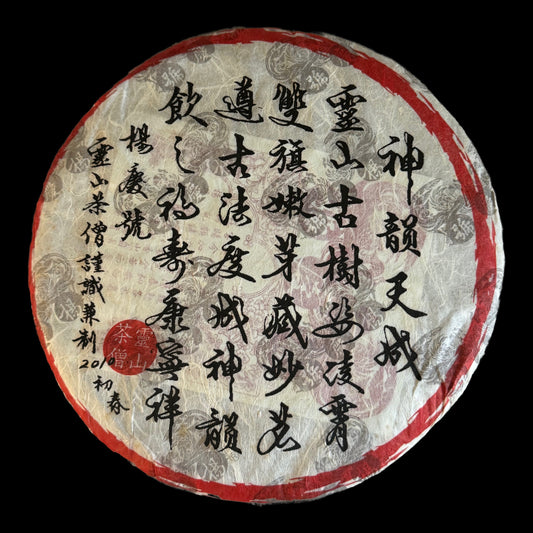 神韻天成
靈山古樹姿凌霄
雙旗嫩芽藏妙茗
遵古法度成神韻
飲之福壽康寧祥
楊慶號
靈山茶僧謹識兼制
2010初春
靈山茶僧